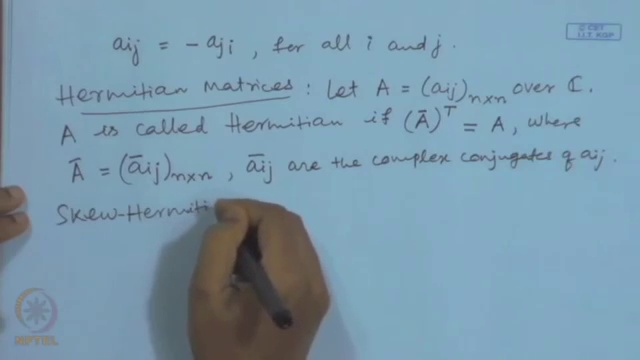 © CET
I.I.T. KGP
aij = - aji , for all i and j.
Hermitian Matrices : Let A = (aij)n×n over ℂ.
A is called Hermitian if (Ā)ᵀ = A, where
Ā = (āij)n×n , āij are the complex conjugates of aij.
Skew-Hermiti
NPTEL